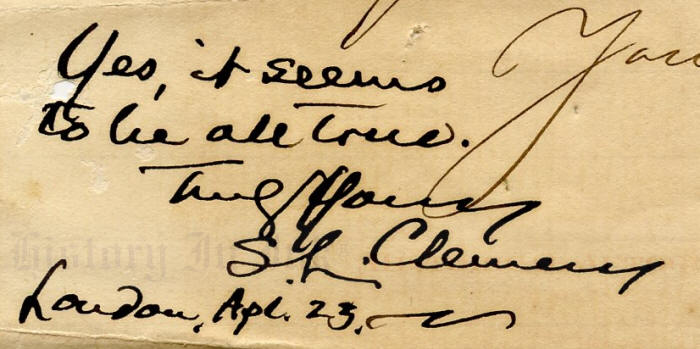 Yes, it seems
to be all true.
Truly Yours
S. L. Clemens
London, Apl. 23.